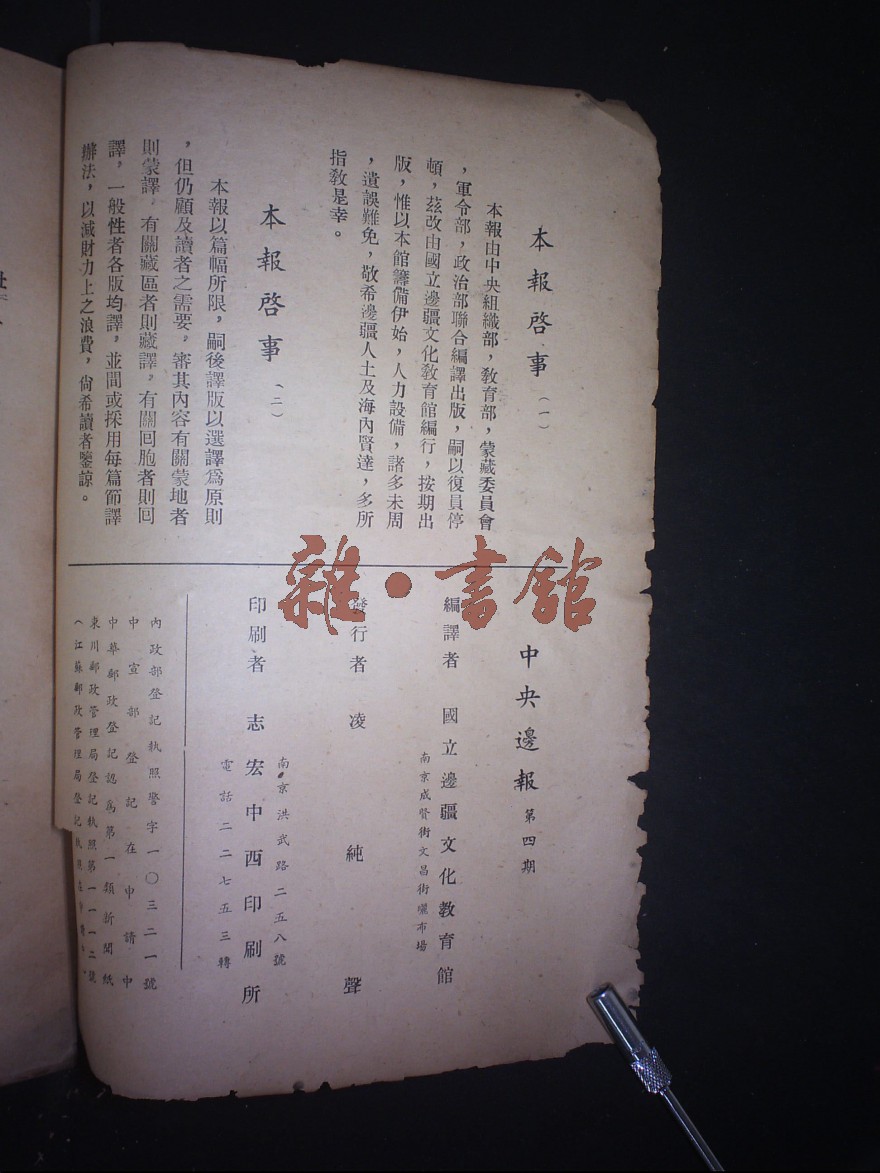 本報啓事（一）
本報由中央組織部，敎育部，蒙藏委員會
，軍令部，政治部聯合編譯出版，嗣以復員停
頓，茲改由國立邊疆文化敎育館編行，按期出
版，惟以本館籌備伊始，人力設備，諸多未周
，遺誤難免，敬希邊疆人士及海內賢達，多所
指敎是幸。
本報啓事（二）
本報以篇幅所限，嗣後譯版以選譯爲原則
，但仍顧及讀者之需要，審其內容有關蒙地者
則蒙譯，有關藏區者則藏譯，有關回胞者則回
譯，一般性者各版均譯，並間或採用每篇節譯
辦法，以減財力上之浪費，尙希讀者鑒諒。
中央邊報 第四期
編譯者 國立邊疆文化敎育館
南京成賢街文昌街曬布場
發行者 凌純聲
南京洪武路二五八號
印刷者 志宏中西印刷所
電話二二七五三轉
內政部登記執照警字一〇三二一號
中宣部登記在申請中
中華郵政登記認爲第一類新聞紙
東川郵政管理局登記執照第一一一二號
（江蘇郵政管理局登記執照
雜·書館